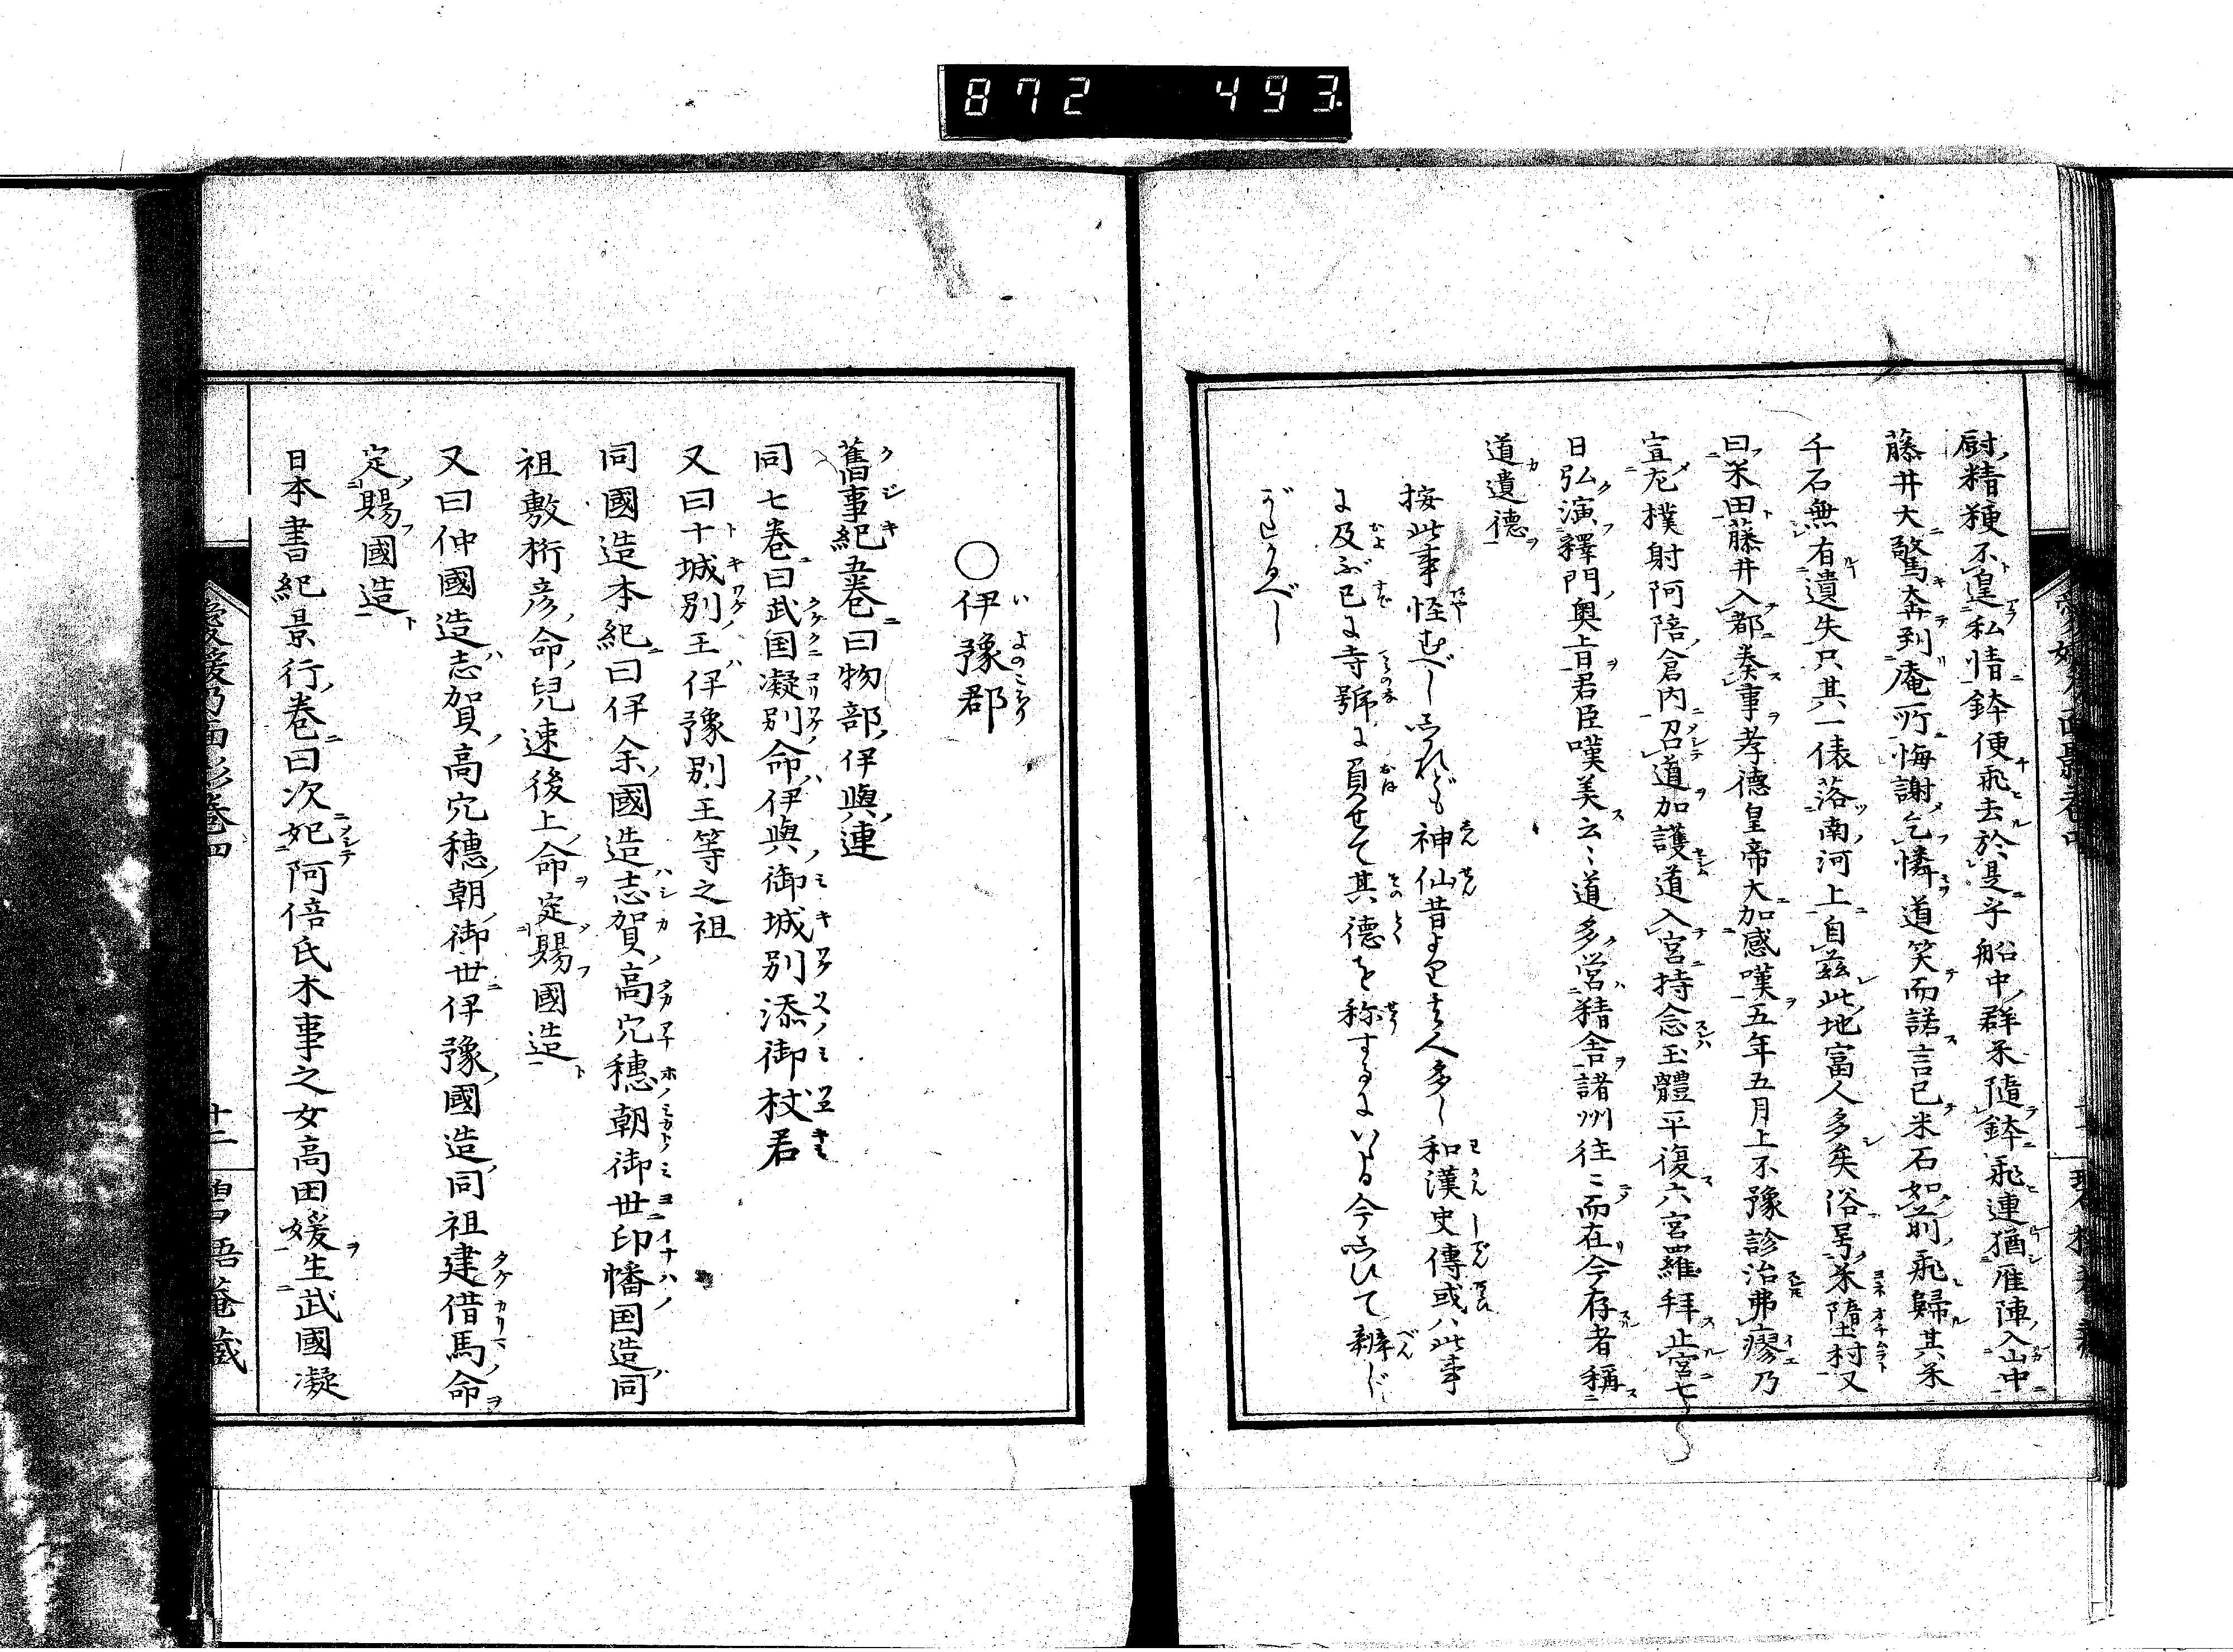 872 493
厨精粳不遑私情鉢便飛去於是乎船中群米随鉢飛連猶雁陣入山中
藤井大驚奔到庵所悔謝乞憐道笑而諾言已米石如前飛歸其米
千石無有遺失只其一俵落南河上自茲此地富人多矣俗号米隋土村又
曰米田藤井入都奏事孝德皇帝大加感嘆五年五月上不豫診治弗瘳乃
宣左樸射阿陪倉内召道加護道入宮持念玉體平復六宮羅拜止宮七
日弘演釋門奥旨君臣嘆美云々道多営精舎諸州往々而在今存者稱
道遺德
按此事怪むべしされども神仙昔よりその人多し和漢史傳或ハ此事
に及ぶ已に寺號に負せて其德を称するにいたる今しひて辨じ
がたかるべし
○伊豫郡
舊事紀五巻曰物部伊與連
同七巻曰武国凝別命伊與御城別添御杖君
又曰十城別王伊豫別王等之祖
同國造本紀曰伊余國造志賀高穴穗朝御世印幡国造同
祖敷桁彦命兒速後上命定賜國造
又曰仲國造志賀高穴穗朝御世伊豫國造同祖建借馬命
定賜國造
日本書紀景行巻曰次妃阿倍氏木事之女高田媛生武國凝
愛媛乃面影巻四 十二 碧梧菴藏